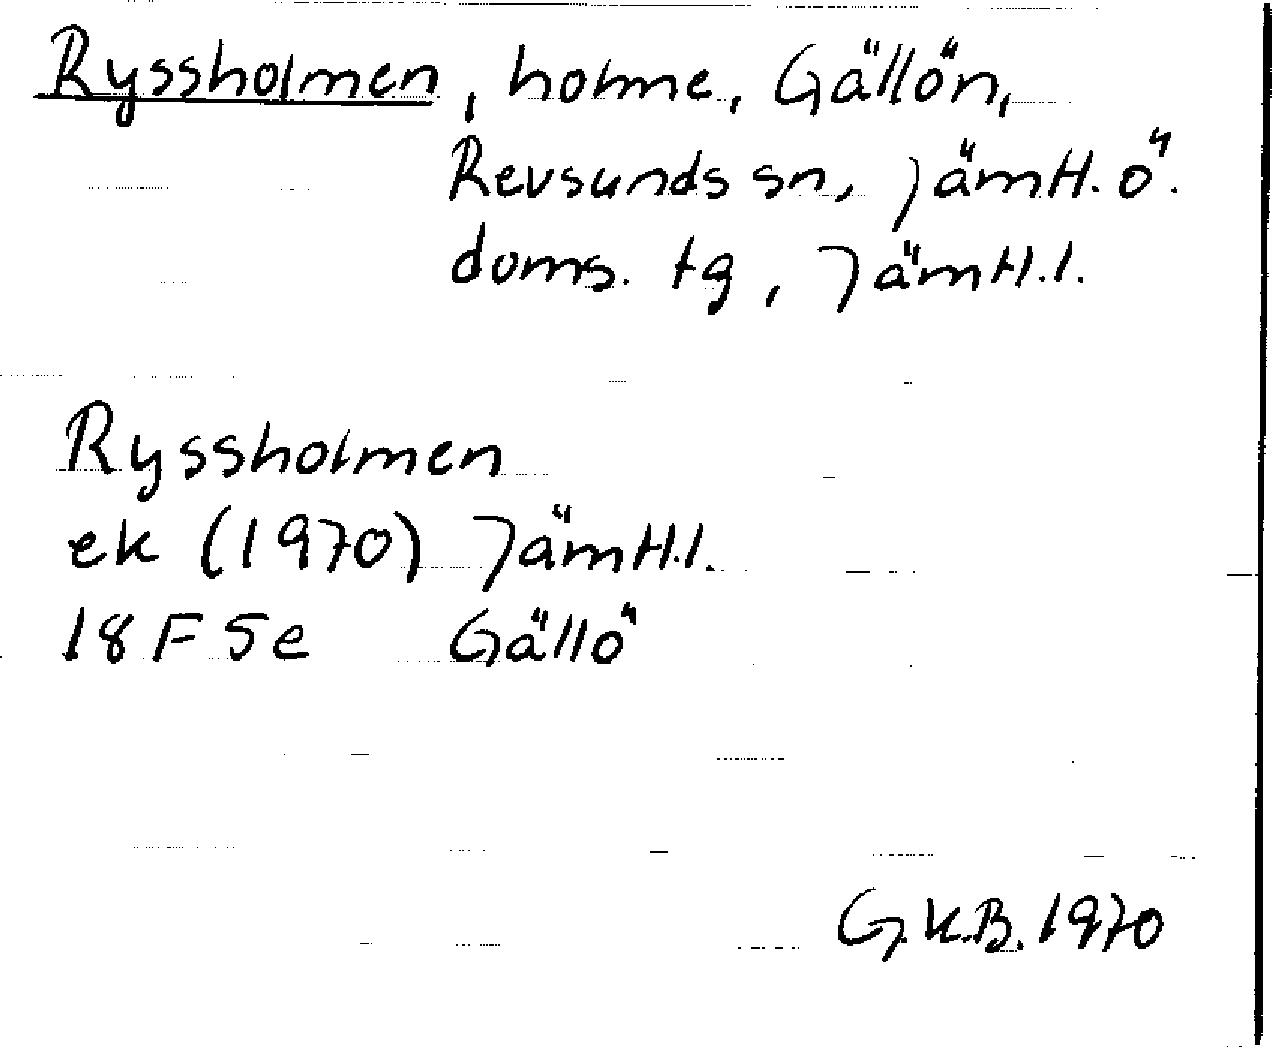 Ryssholmen, holme, Gällön,
Revsunds sn, Jämtl. ö.
doms. tg, Jämtl. l.
Ryssholmen
ek (1970) Jämtl. l.
18 F 5e Gällö
G.K.B. 1970